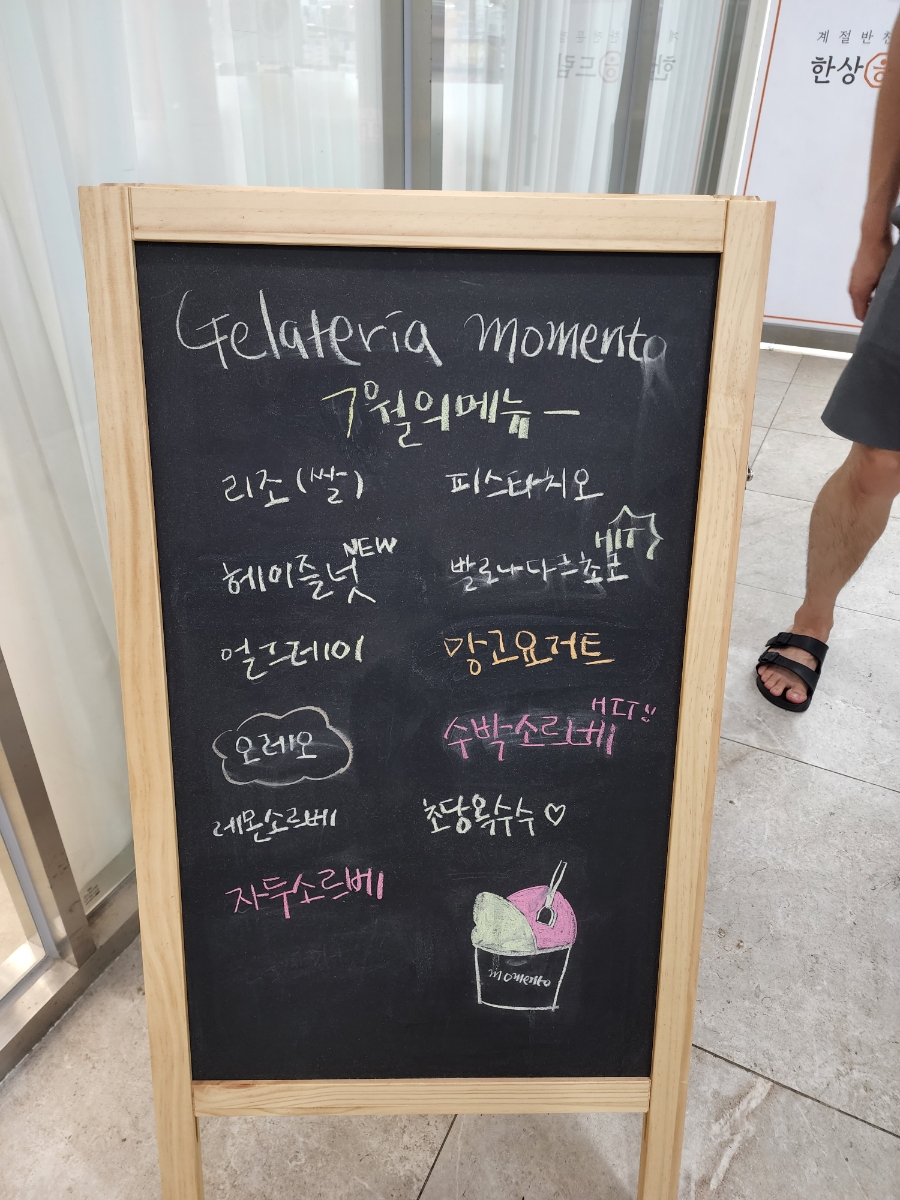 계절반찬
한상
Gelateria momento
7월의메뉴 -
리조 (쌀)
피스타치오
헤이즐넛 NEW
발로나다크초코 HIT
얼그레이
망고요거트
오레오
수박소르베 HIT!!
레몬소르베
초당옥수수 ♡
자두소르베
momento